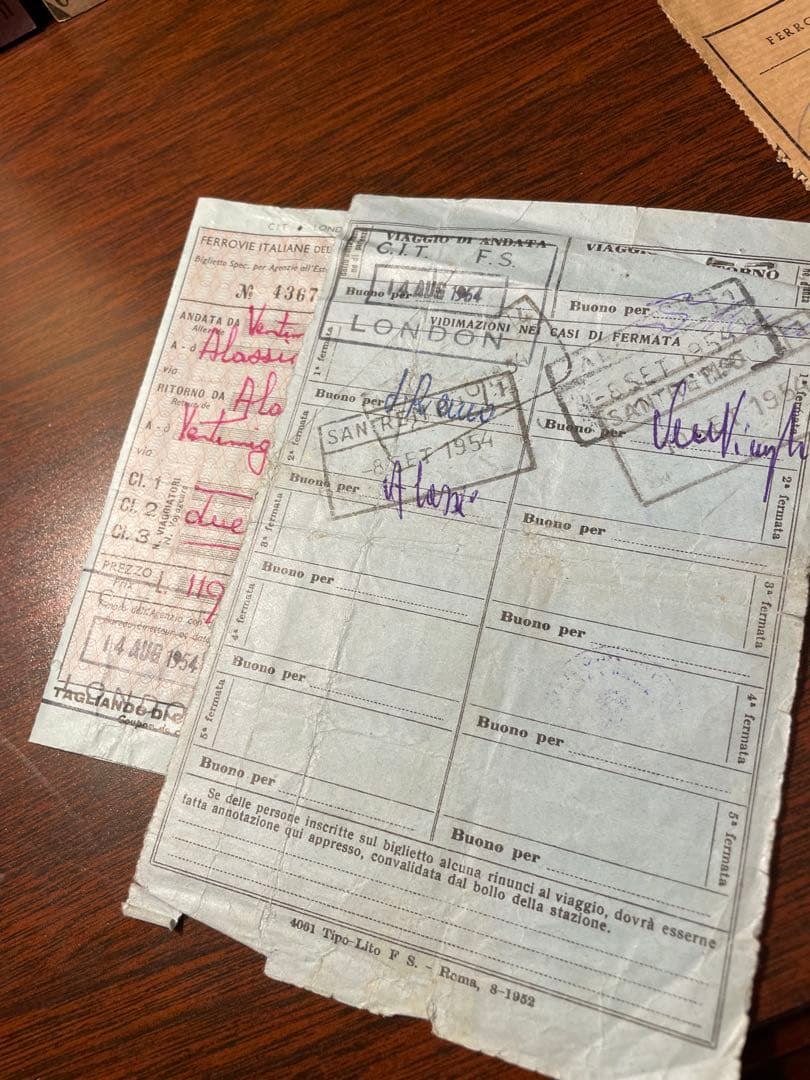 FERRO
CIT • LOND
FERROVIE ITALIANE DEL
Biglietto Spec. per Agenzie all'Est
№ 4367
ANDATA DA Ventim
Aller de
A - à Alassi
via
RITORNO DA Ala
Retour de
A - à Ventimig
via
Cl. 1
Cl. 2
Cl. 3
N. VIAGGIATORI
due
PREZZO
Prix L. 119
14 AUG 1954
LONDO
TAGLIANDO DI
Coupon de c
VIAGGIO DI ANDATA
C.I.T. F.S.
14 AUG 1954
LONDON
Buono per
VIAGGIO RITORNO
Buono per
VIDIMAZIONI NEI CASI DI FERMATA
1ª fermata
Buono per S Remo
SAN REMO
-8 SET 1954
2ª fermata
Buono per Alassio
3ª fermata
Buono per
4ª fermata
Buono per
5ª fermata
Buono per
1ª
-8 SET 1954
SANREMO
Buono per Ventimigli
2ª fermata
Buono per
3ª fermata
Buono per
4ª fermata
Buono per
5ª fermata
Buono per
Se delle persone inscritte sul biglietto alcuna rinunci al viaggio, dovrà esserne
fatta annotazione qui appresso, convalidata dal bollo della stazione.
4001 Tipo-Lito F S. - Roma, 8-1952